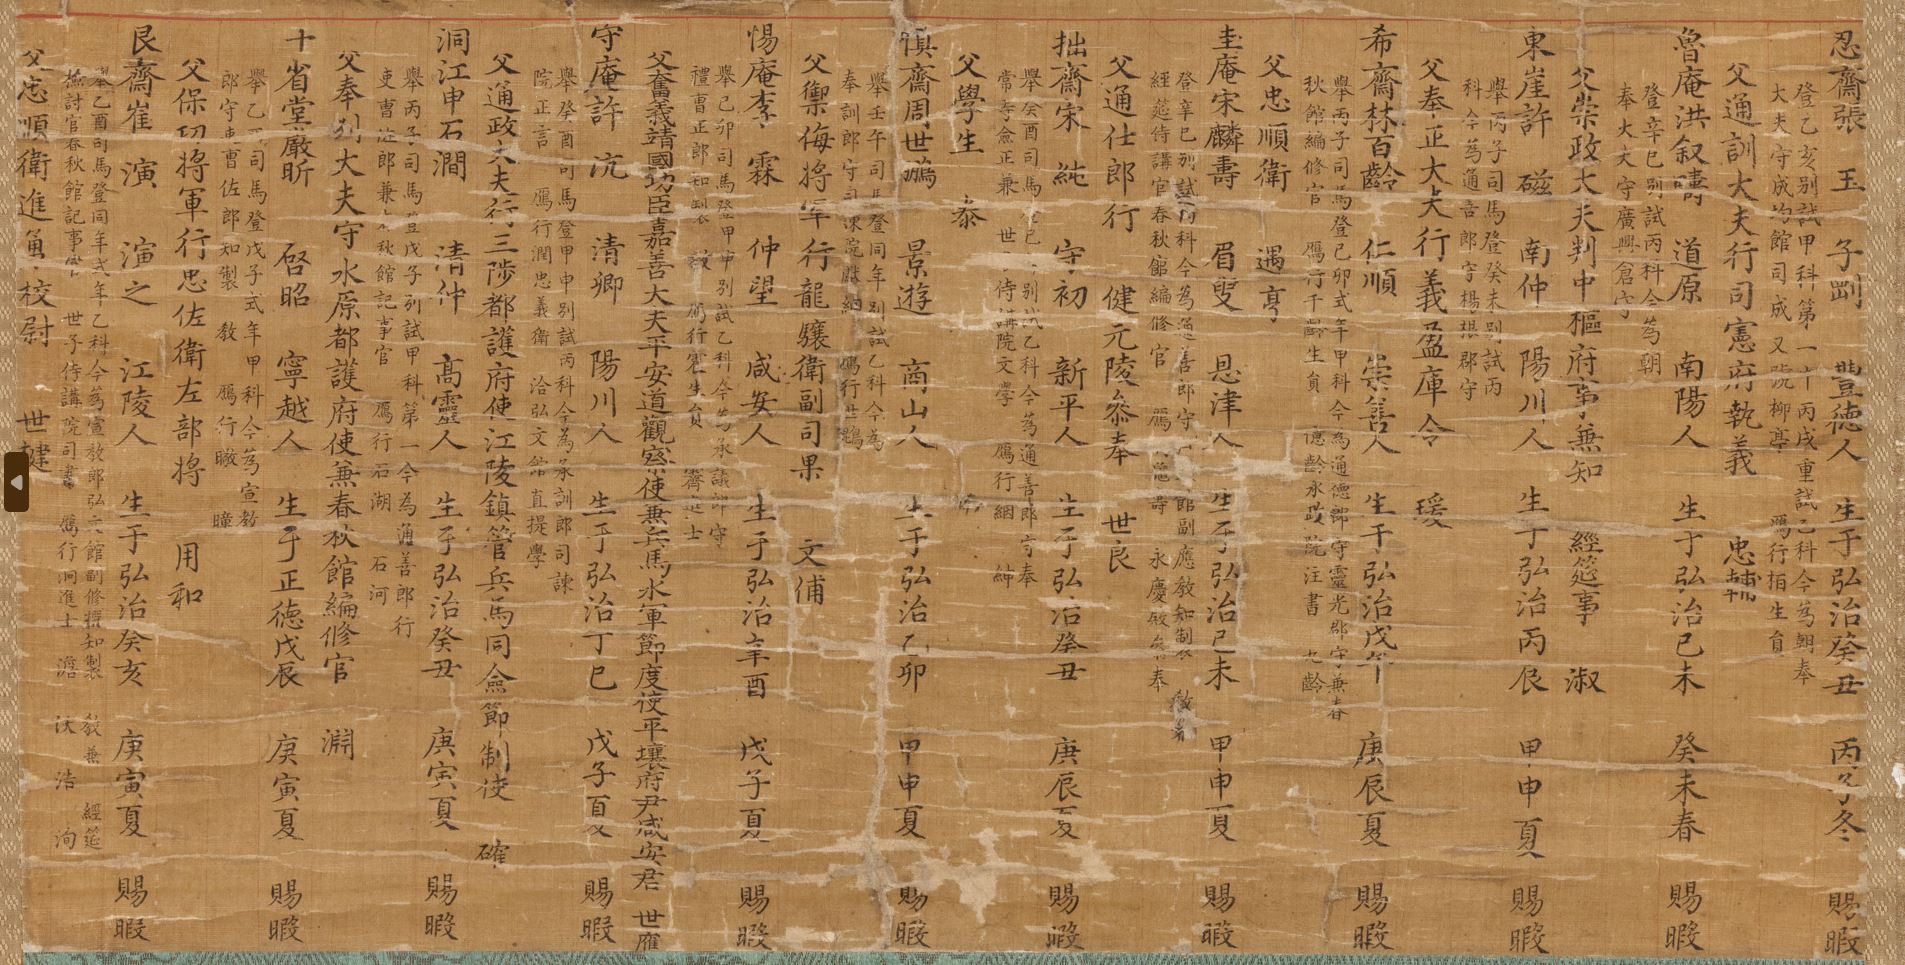 忍齋張 玉 子剛 豊德人 生于弘治癸丑 丙子冬 賜暇
登乙亥别試甲科第一 丙戌重試乙科今爲朝奉
大夫守成均館司成 又號柳亭 鴈行栢生員
父通訓大夫行司憲府執義 忠輔
魯庵洪叙疇 道原 南陽人 生于弘治己未 癸未春 賜暇
登辛巳别試丙科今爲朝
奉大夫守廣興倉守
父崇政大夫判中樞府事兼知 經筵事 淑
東崖許 磁 南仲 陽川人 生于弘治丙辰 甲申夏 賜暇
擧丙子司馬登癸未别試丙
科今爲通善郎守楊根郡守
父奉正大夫行義盈庫令 瑗
希齋林百齡 仁順 崇善人 生于弘治戊午 庚辰夏 賜暇
擧丙子司馬登己卯式年甲科今爲通德郎守靈光郡守兼春
秋館編修官 鴈行千齡生員 億齡承政院注書 九齡
父忠順衛 遇亨
圭庵宋麟壽 眉叟 恩津人 生于弘治己未 甲申夏 賜暇
登辛巳别試丙科今爲通善郎守 館副應敎知製 敎兼
經筵侍講官春秋館編修官 鴈 億壽 永慶殿參奉
父通仕郎行 健元陵叅奉 世良
拙齋宋 純 守初 新平人 生于弘治癸丑 庚辰夏 賜暇
擧癸酉司馬 己 别試乙科今爲通善郎守奉
常寺僉正兼 世 侍講院文學 鴈行絪 紳
父學生 泰
愼齋周世鵬 景遊 商山人 生于弘治乙卯 甲申夏 賜暇
擧壬午司馬登同年别試乙科今爲
奉訓郎守司諫院獻納 鴈行世鵾
父禦侮將軍行龍驤衛副司果 文俌
惕庵李 霖 仲望 咸安人 生于弘治辛酉 戊子夏 賜暇
擧己卯司馬登甲申别試乙科今爲承議郎守
禮曹正郎知製 敎 鴈行霔生員 霽進士
父奮義靖國功臣嘉善大夫平安道觀察使兼兵馬水軍節度使平壤府尹咸安君 世應
守庵許 沆 清卿 陽川人 生于弘治丁巳 戊子夏 賜暇
擧癸酉司馬登甲申别試丙科今爲承訓郎司諫
院正言 鴈行潤忠義衛 洽弘文館直提學
父通政大夫行三陟都護府使江陵鎮管兵馬同僉節制使 確
洞江申石澗 清仲 高靈人 生于弘治癸丑 庚寅夏 賜暇
擧丙子司馬登戊子别試甲科第一今爲通善郎行
吏曹佐郎兼春秋館記事官 鴈行石湖 石河
父奉列大夫守水原都護府使兼春秋館編修官 淵
十省堂嚴昕 啓昭 寧越人 生于正德戊辰 庚寅夏 賜暇
擧乙酉司馬登戊子式年甲科今爲宣教
郎守吏曹佐郎知製 敎 鴈行曒 曈
父保功將軍行忠佐衛左部將 用和
艮齋崔 演 演之 江陵人 生于弘治癸亥 庚寅夏 賜暇
擧乙酉司馬登同年式年乙科今爲宣敎郎弘文館副修撰知製 敎兼 經筵
檢討官春秋館記事官 世子侍講院司書 鴈行泂進士 澹 泆 浩 洵
父忠順衛進勇校尉 世楗